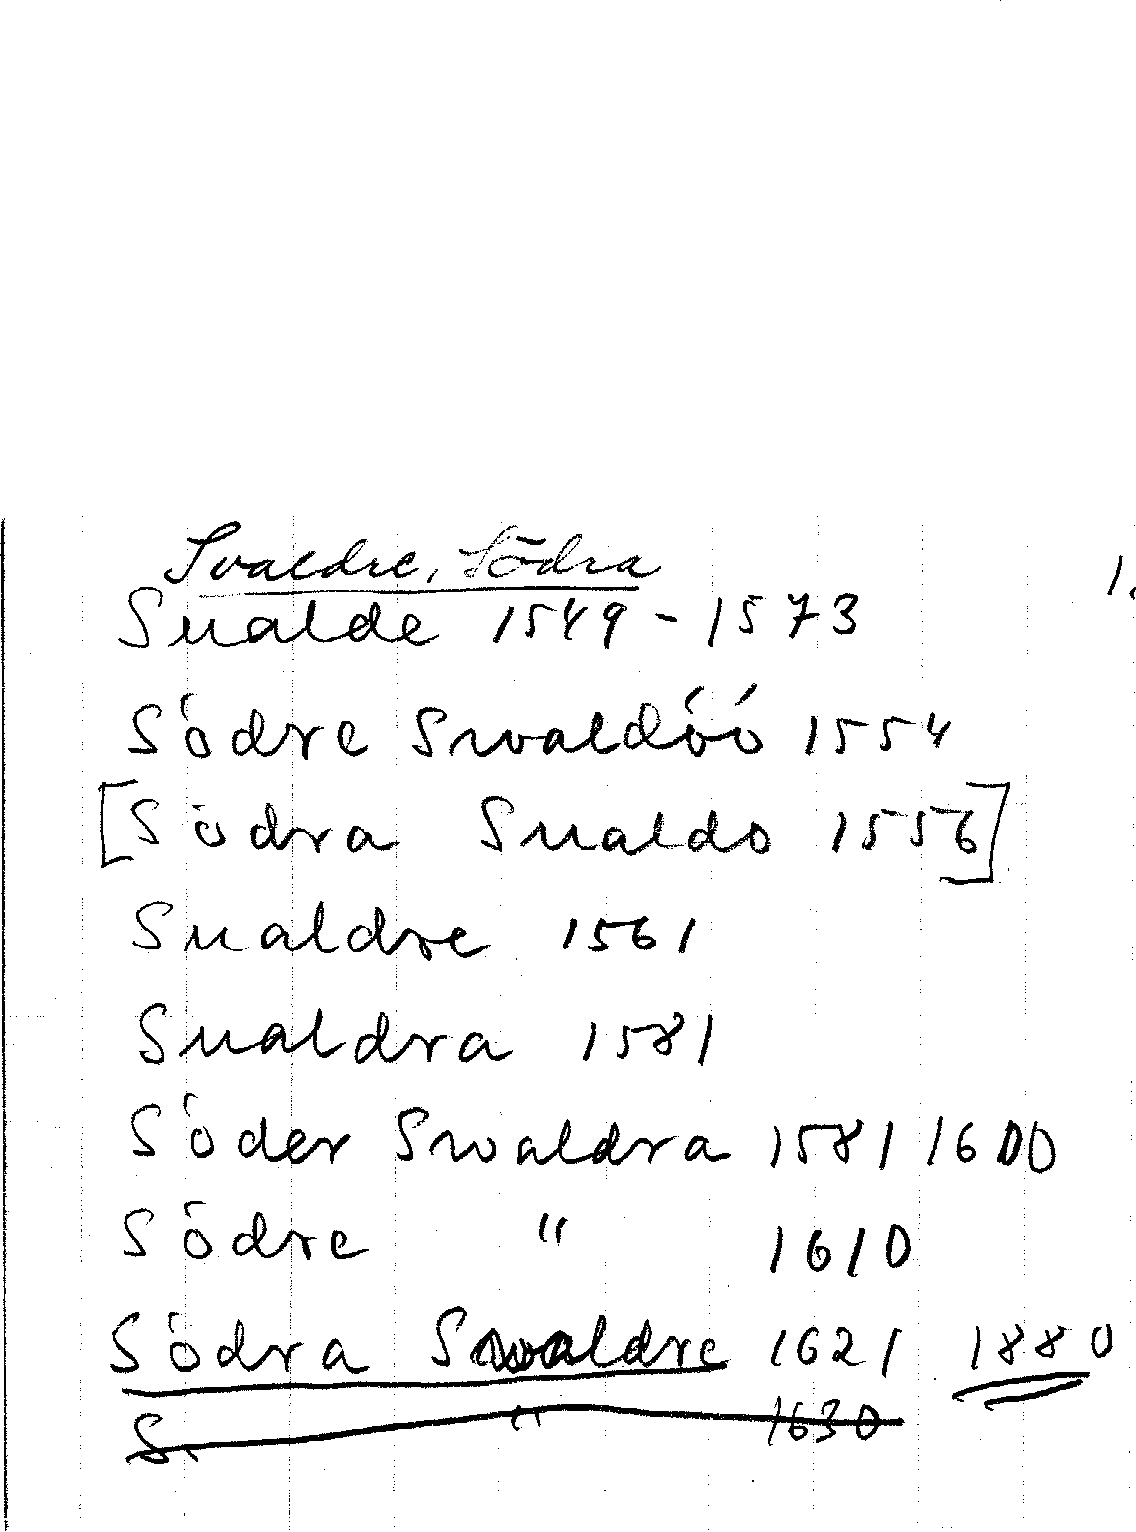 Svaldre, Södra
Sualde 1549 - 1573
Södre Swaldöö 1554
[Södra Sualdo 1556]
Sualdre 1561
Sualdra 1581
Söder Swaldra 1581 1600
Södre " 1610
Södra Swaldre 1621 1880
S. " 1630